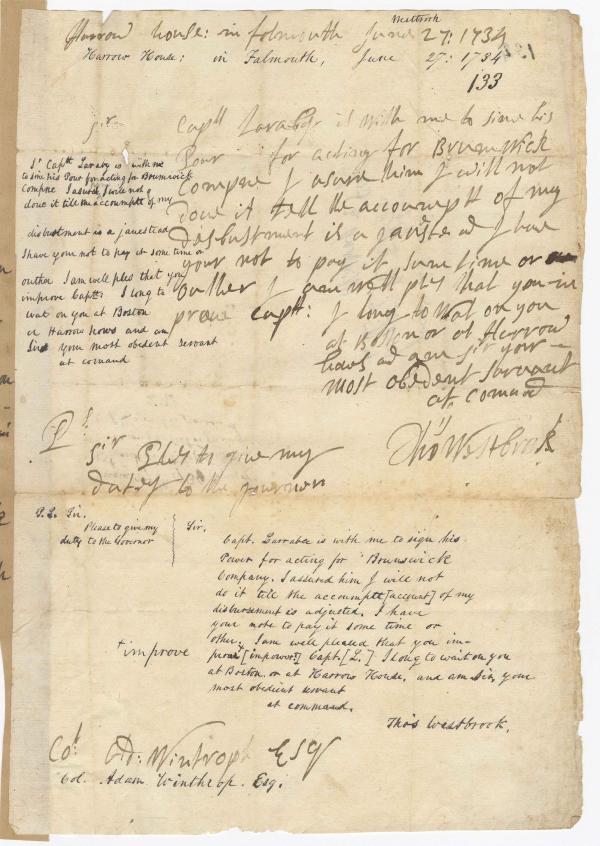 Harrow house: in folmouth June 27: 1734
Harrow House; in Falmouth, June 27: 1734
133
Sr
Captt Larabey is with me to sine his
Pour for acting for Brunswick
Compne I asure him I will not
doue it tell the accoumptt of my
disbustment is a justed I have
your not to pay it some time or
outher I am well ples that you im
proue Captt: I long to wat on you
at Boston or at Harrow
hows ad am Sir your
most obedent Servant
at comand
Thos Westbrook
Sr Captt Laraby is with me
to sine his Pour for acting for Brunswick
Compne I asure him I will not
doue it till the accoumptt of my
disbustment is a justed
I have your not to pay it some time or
outher I am well ples that you
improve Captt: I long to
wat on you at Boston
or Harrow hows and am
Sir your most obedient servant
at comand
Ps
Sir Ples to give my
dutey to the
P.S. Sir.
Please to give my
duty to the Governor
Sir.
Capt. Larrabee is with me to sign his
Power for acting for Brunswick
Company. I assured him I will not
do it till the accoumptt [account] of my
disbursement is adjusted. I have
your note to pay it some time or
other. I am well pleased that you im-
prove [impower] Capt. [L.] I long to wait on you
at Boston, or at Harrow House, and am Sir, your
most obedient servant
at command.
Thos Westbrook.
+improve
Col: Ad: Wintroph ESQ
Col. Adam Winthrop. Esq.